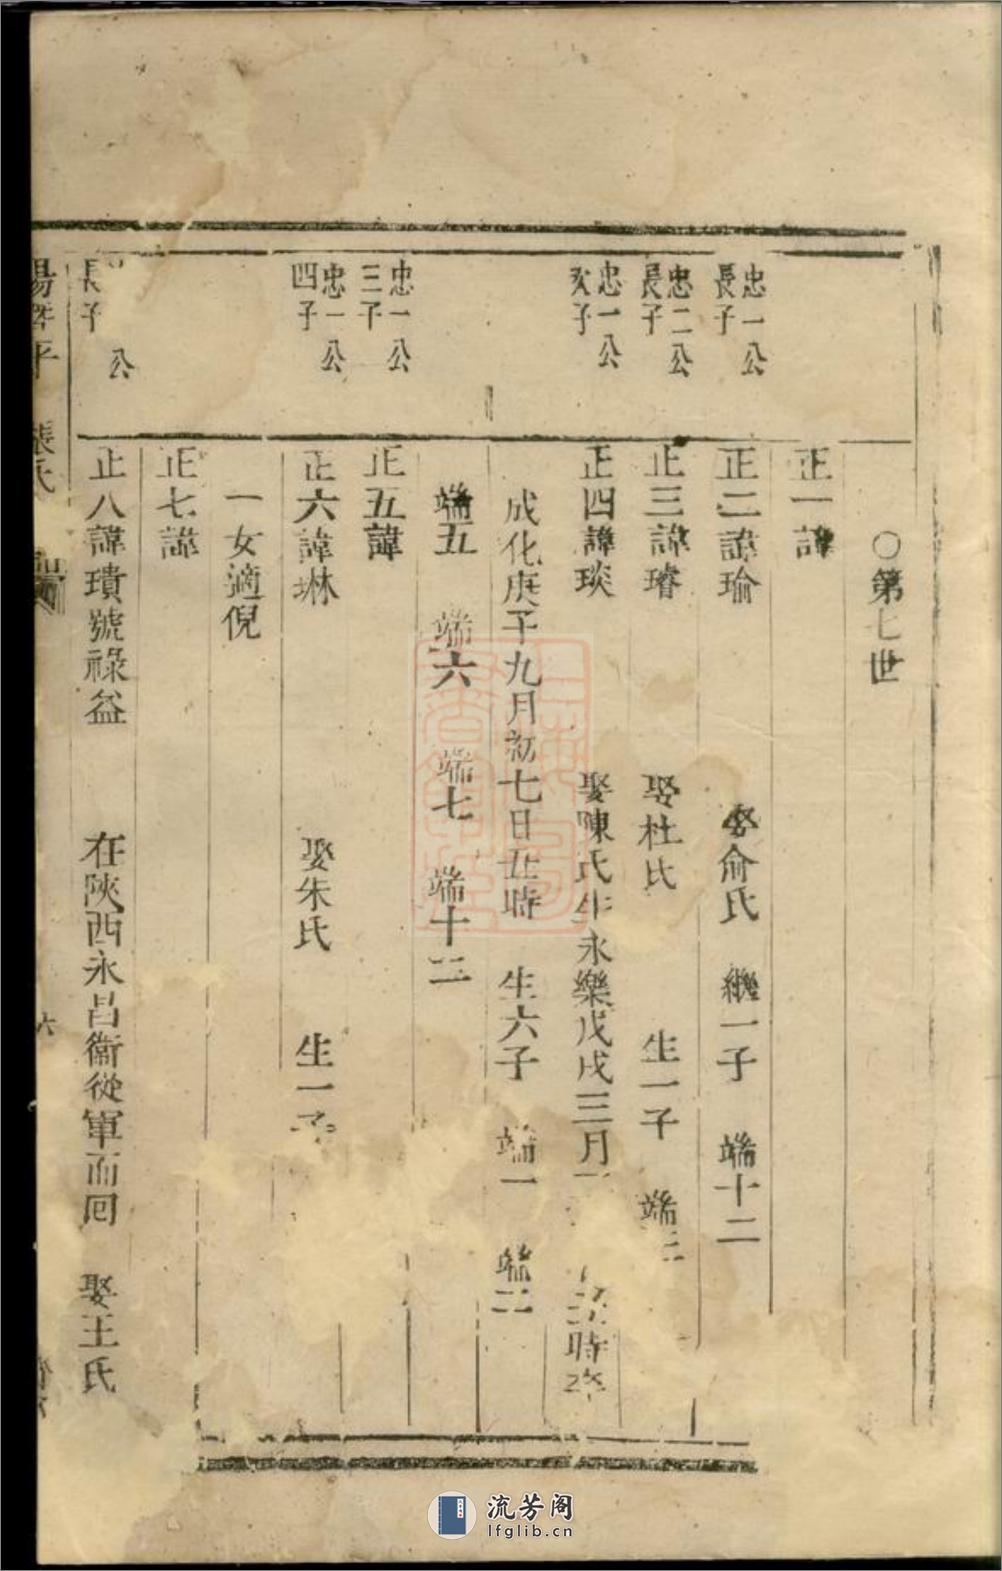 ○第七世
正一諱
忠一公
長子
正二諱瑜 娶俞氏 繼一子 端十二
忠二公
長子
正三諱璿 娶杜氏 生一子 端
忠一公
次子
正四諱琰 娶陳氏生永樂戊戌三月 時卒
成化庚子九月初七日丑時 生六子 端一 端二
端五 端六 端七 端十三
忠一公
三子
正五諱
忠一公
四子
正六諱琳 娶朱氏 生一子
一女適倪
正七諱
公
長子
正八諱璝號祿益 在陝西永昌衞從軍而回 娶王氏
張氏
六
流芳阁
lfglib.cn